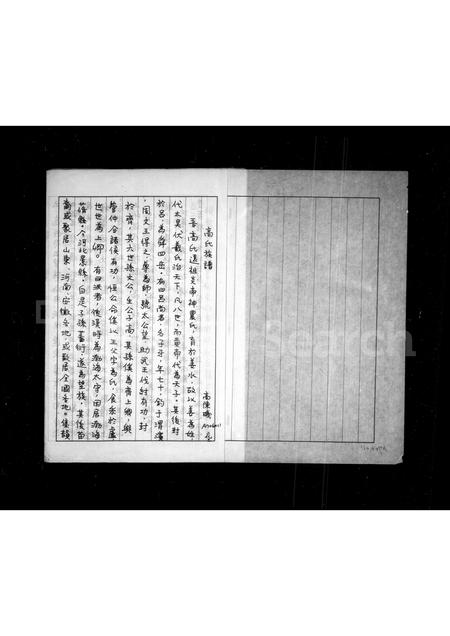 高氏族譜
高陳
吾高氏遠祖炎帝神農氏，育於姜水，故以姜為姓
代太昊伏羲氏治天下，凡八世，而黃帝代為天子。其後封
於呂，為舜四岳。有曰呂尚者，名子牙，年七十，釣于渭濱
，周文王得之，尊為師，號太公望，助武王伐紂有功，封
於齊，其六世孫文公，生公子高，其孫傒為齊上卿，與
管仲合諸侯有功，恒公命傒以王父字為氏，食采於盧
世世為上卿。有曰洪者，後漢時為渤海太守，因居渤海
蓨縣，今河北景縣，自是子孫蕃衍，遂為望族，其後苗
裔或聚居山東、河南、安徽各地，或散居全國各地。